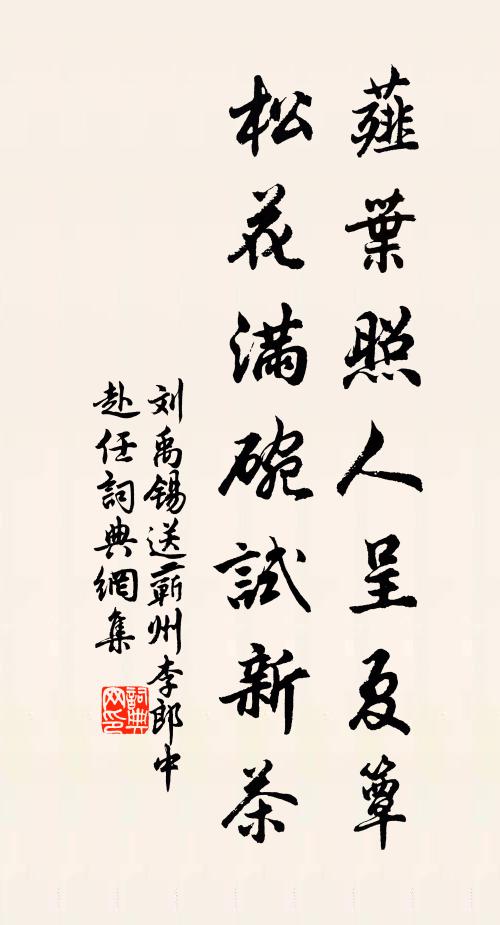 薤葉照人呈夏簟
松花滿碗試新茶
刘禹锡送蕲州李郎中
赴任詞典網集
詞典网印